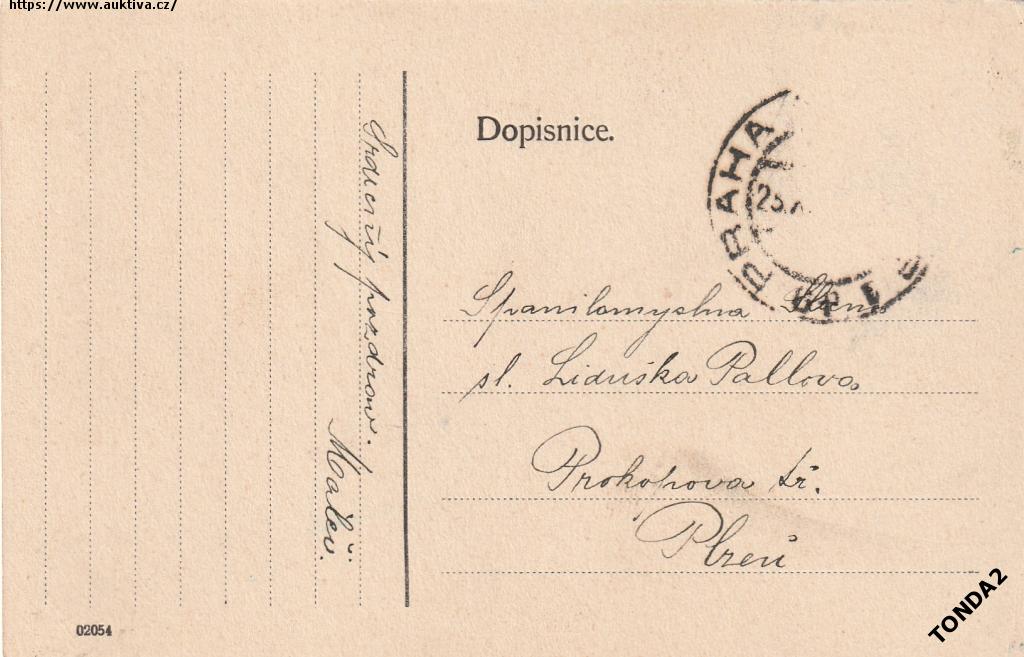 https://www.auktiva.cz/
Dopisnice.
PRAHA
25.
Srdečný pozdrav.
Spanilomyslna
sl. Liduška Pallova
Prokopova tř.
Plzeň
02054
TONDA2